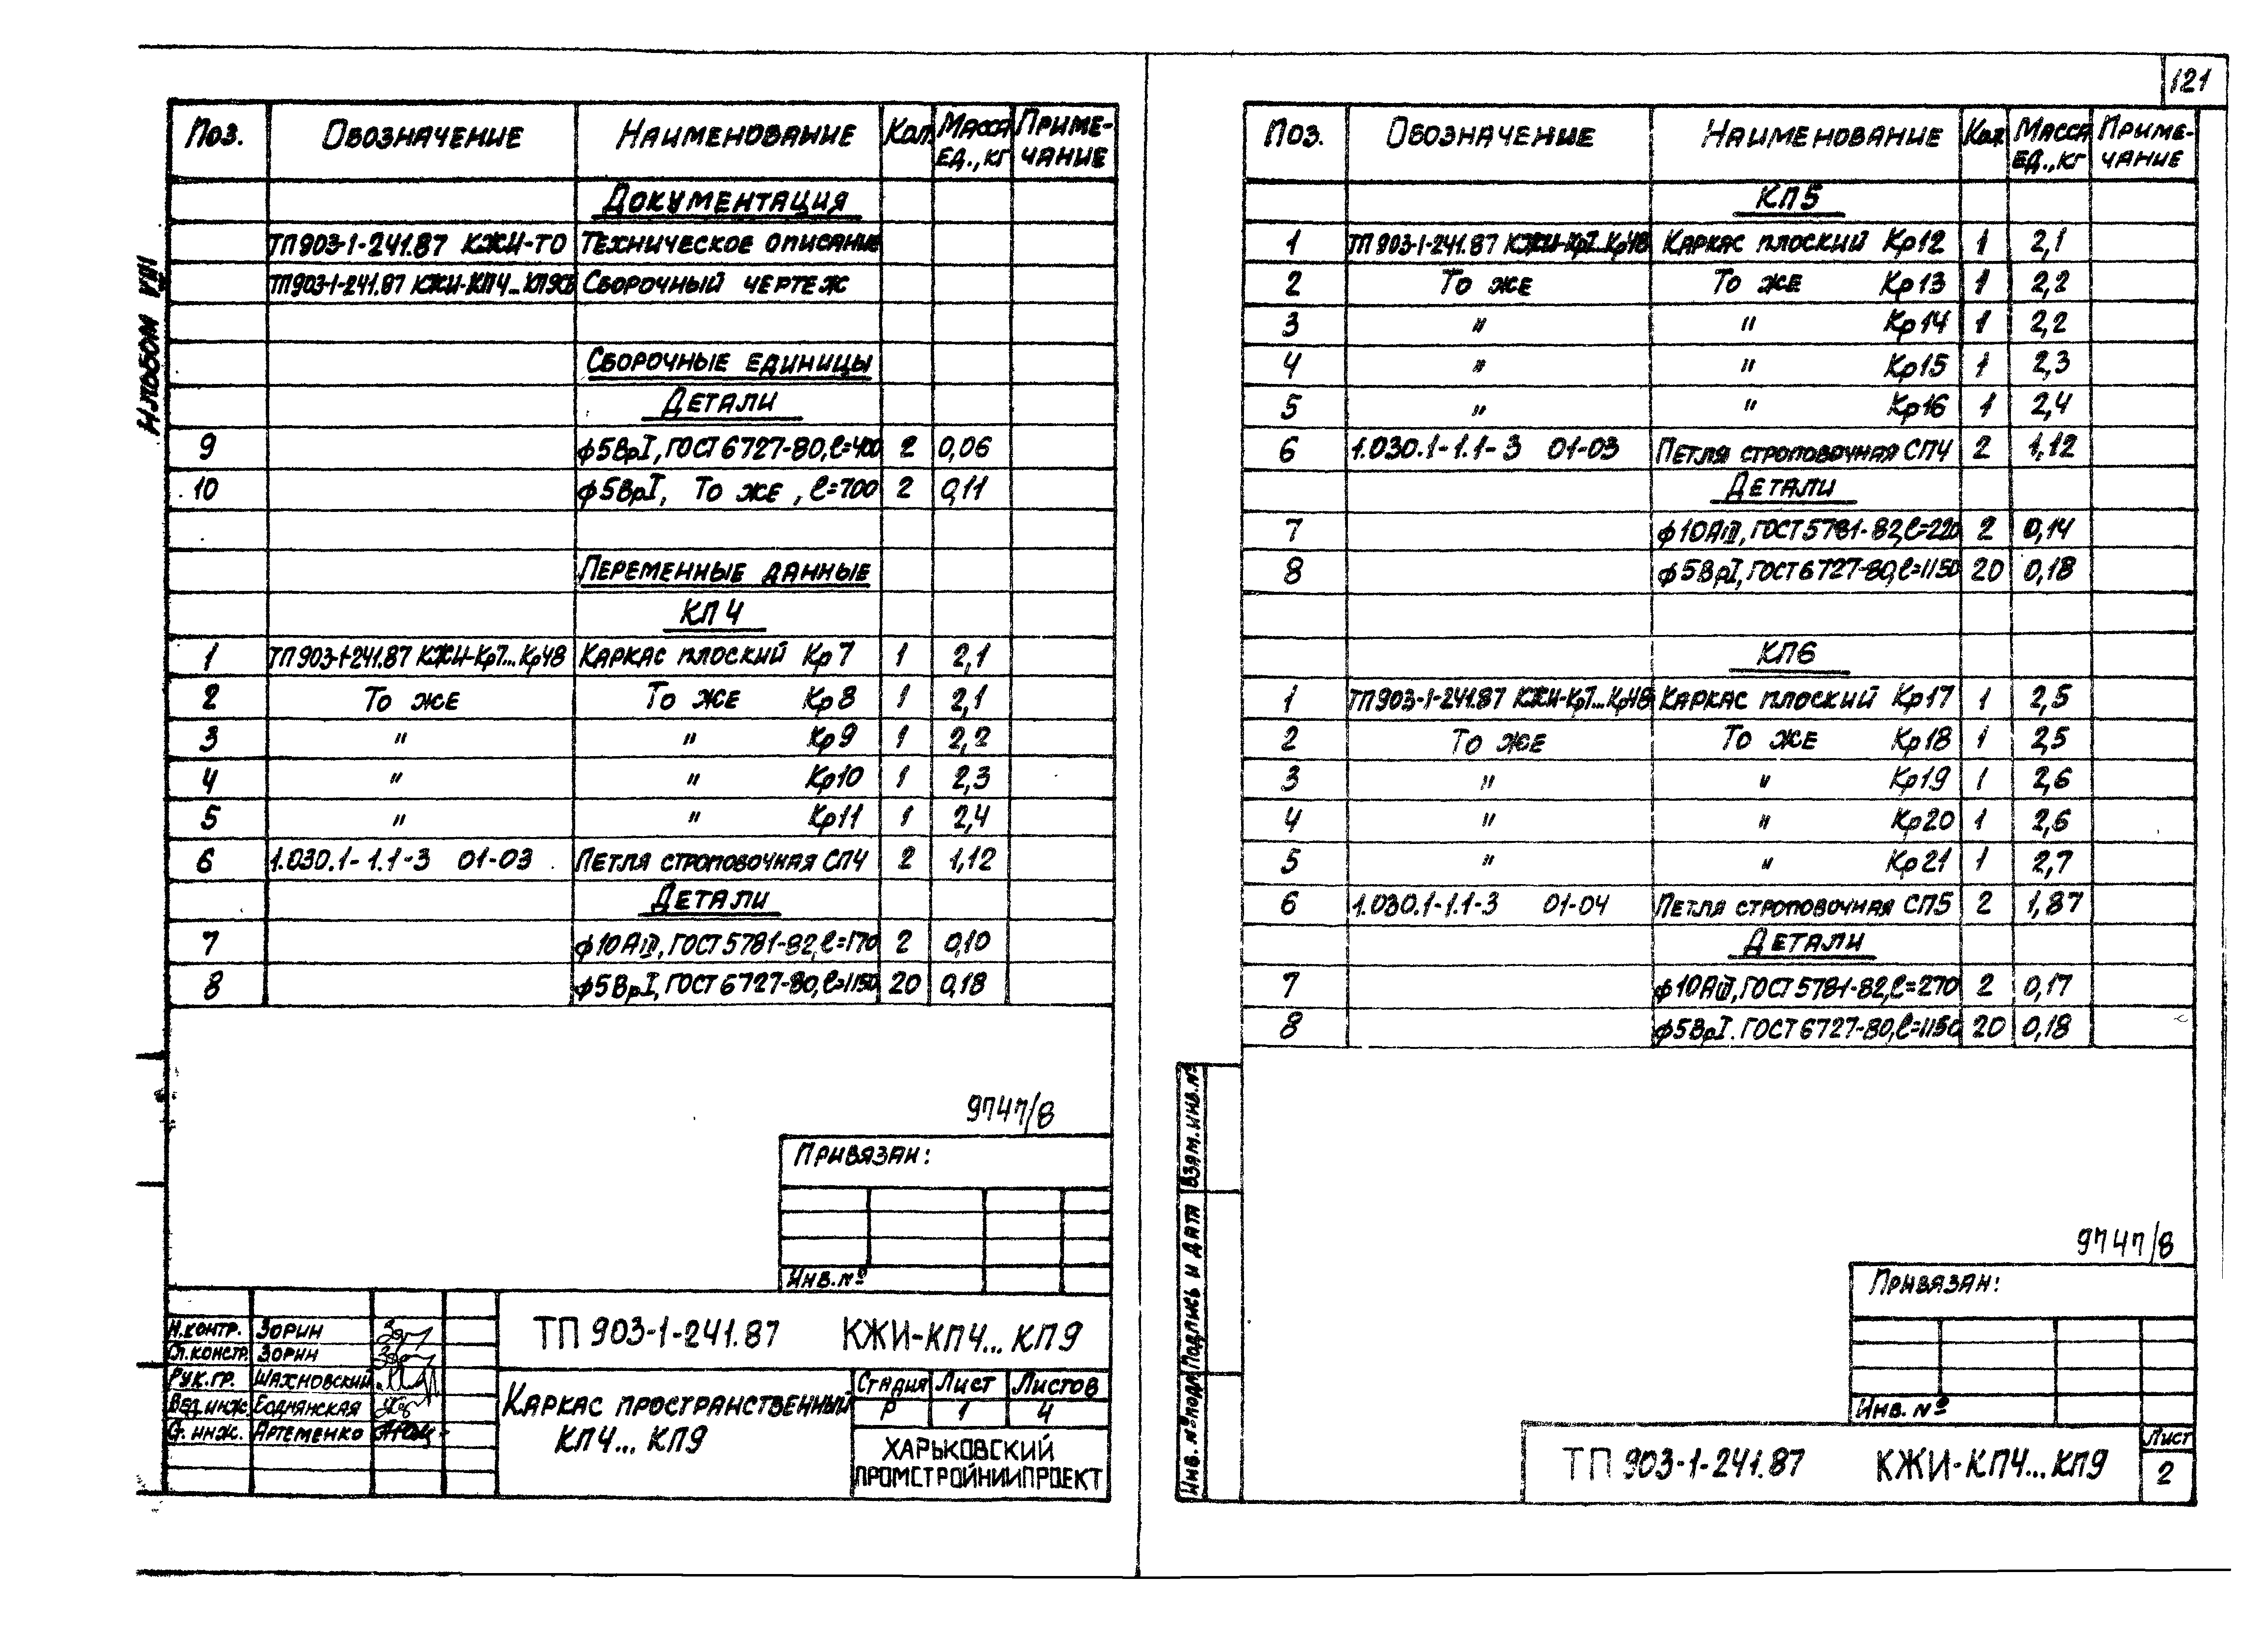 121
Альбом VIII
Поз. Обозначение Наименование Кол. Масса ед., кг Примечание
Документация
ТП903-1-241.87 КЖИ-ТО Техническое описание
ТП903-1-241.87 КЖИ-КП4...КП9СБ Сборочный чертеж
Сборочные единицы
Детали
9 ф5ВрI, ГОСТ 6727-80, ℓ=400 2 0,06
10 ф5ВрI, То же, ℓ=700 2 0,11
Переменные данные
КП4
1 ТП903-1-241.87 КЖИ-Кр7...Кр48 Каркас плоский Кр7 1 2,1
2 То же То же Кр8 1 2,1
3 " " Кр9 1 2,2
4 " " Кр10 1 2,3
5 " " Кр11 1 2,4
6 1.030.1-1.1-3 01-03 Петля строповочная СП4 2 1,12
Детали
7 ф10АIII, ГОСТ 5781-82, ℓ=170 2 0,10
8 ф5ВрI, ГОСТ 6727-80, ℓ=1150 20 0,18
9747/8
Привязан:
Инв. №
Н.контр. Зорин
Гл.констр. Зорин
Рук.гр. Шахновский
Вед.инж. Боднянская
Ст. инж. Артеменко
ТП 903-1-241.87 КЖИ-КП4...КП9
Каркас пространственный
КП4...КП9
Стадия Лист Листов
Р 1 4
ХАРЬКОВСКИЙ
ПРОМСТРОЙНИИПРОЕКТ
Поз. Обозначение Наименование Кол. Масса ед., кг Примечание
КП5
1 ТП903-1-241.87 КЖИ-Кр7...Кр48 Каркас плоский Кр12 1 2,1
2 То же То же Кр13 1 2,2
3 " " Кр14 1 2,2
4 " " Кр15 1 2,3
5 " " Кр16 1 2,4
6 1.030.1-1.1-3 01-03 Петля строповочная СП4 2 1,12
Детали
7 ф10АIII, ГОСТ 5781-82, ℓ=220 2 0,14
8 ф5ВрI, ГОСТ 6727-80, ℓ=1150 20 0,18
КП6
1 ТП903-1-241.87 КЖИ-Кр7...Кр48 Каркас плоский Кр17 1 2,5
2 То же То же Кр18 1 2,5
3 " " Кр19 1 2,6
4 " " Кр20 1 2,6
5 " " Кр21 1 2,7
6 1.030.1-1.1-3 01-04 Петля строповочная СП5 2 1,87
Детали
7 ф10АIII, ГОСТ 5781-82, ℓ=270 2 0,17
8 ф5ВрI. ГОСТ 6727-80, ℓ=1150 20 0,18
Инв. № подл. Подпись и дата Взам. инв. №
9747/8
Привязан:
Инв. №
ТП 903-1-241.87 КЖИ-КП4...КП9
Лист
2